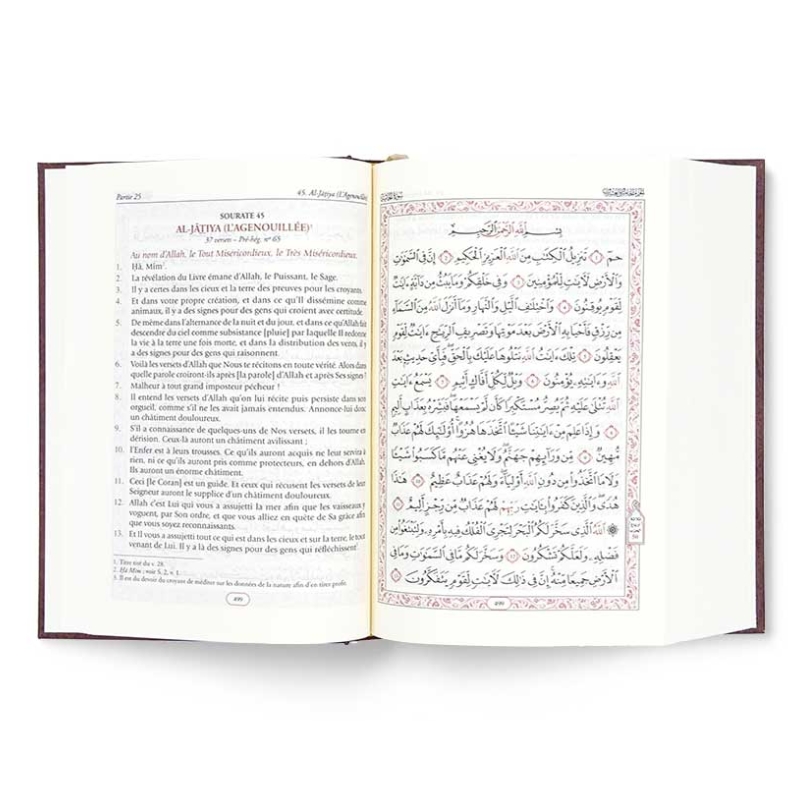 Partie 25
45. Al-Jâṯiya (L'Agenouillée)
SOURATE 45
AL-JÂṮIYA (L'AGENOUILLÉE)¹
37 versets – Pré-hég. nº 65
Au nom d'Allah, le Tout Miséricordieux, le Très Miséricordieux.
1. Ḥâ, Mîm².
2. La révélation du Livre émane d'Allah, le Puissant, le Sage.
3. Il y a certes dans les cieux et la terre des preuves pour les croyants.
4. Et dans votre propre création, et dans ce qu'Il dissémine comme
animaux, il y a des signes pour des gens qui croient avec certitude.
5. De même dans l'alternance de la nuit et du jour, et dans ce qu'Allah fait
descendre du ciel comme subsistance [pluie] par laquelle Il redonne
la vie à la terre une fois morte, et dans la distribution des vents, il y
a des signes pour des gens qui raisonnent.
6. Voilà les versets d'Allah que Nous te récitons en toute vérité. Alors dans
quelle parole croiront-ils après [la parole] d'Allah et après Ses signes !
7. Malheur à tout grand imposteur pécheur !
8. Il entend les versets d'Allah qu'on lui récite puis persiste dans son
orgueil, comme s'il ne les avait jamais entendus. Annonce-lui donc
un châtiment douloureux.
9. S'il a connaissance de quelques-uns de Nos versets, il les tourne en
dérision. Ceux-là auront un châtiment avilissant ;
10. l'Enfer est à leurs trousses. Ce qu'ils auront acquis ne leur servira à
rien, ni ce qu'ils auront pris comme protecteurs, en dehors d'Allah.
Ils auront un énorme châtiment.
11. Ceci [le Coran] est un guide. Et ceux qui récusent les versets de leur
Seigneur auront le supplice d'un châtiment douloureux.
12. Allah c'est Lui qui vous a assujetti la mer afin que les vaisseaux y
voguent, par Son ordre, et que vous alliez en quête de Sa grâce afin
que vous soyez reconnaissants.
13. Et Il vous a assujetti tout ce qui est dans les cieux et sur la terre, le tout
venant de Lui. Il y a là des signes pour des gens qui réfléchissent³.
1. Titre tiré du v. 28.
2. Ḥâ Mîm : voir S. 2, v. 1.
3. Il est du devoir du croyant de méditer sur les données de la nature afin d'en tirer profit.
499
بِسْمِ اللَّهِ الرَّحْمَٰنِ الرَّحِيمِ
حمٓ ١ تَنزِيلُ الْكِتَٰبِ مِنَ اللَّهِ الْعَزِيزِ الْحَكِيمِ ٢ إِنَّ فِي السَّمَٰوَٰتِ
وَالْأَرْضِ لَآيَٰتٍ لِّلْمُؤْمِنِينَ ٣ وَفِي خَلْقِكُمْ وَمَا يَبُثُّ مِن دَآبَّةٍ ءَايَٰتٌ
لِّقَوْمٍ يُوقِنُونَ ٤ وَاخْتِلَٰفِ الَّيْلِ وَالنَّهَارِ وَمَآ أَنزَلَ اللَّهُ مِنَ السَّمَآءِ
مِن رِّزْقٍ فَأَحْيَا بِهِ الْأَرْضَ بَعْدَ مَوْتِهَا وَتَصْرِيفِ الرِّيَٰحِ ءَايَٰتٌ لِّقَوْمٍ
يَعْقِلُونَ ٥ تِلْكَ ءَايَٰتُ اللَّهِ نَتْلُوهَا عَلَيْكَ بِالْحَقِّ فَبِأَيِّ حَدِيثٍ بَعْدَ
اللَّهِ وَءَايَٰتِهِ يُؤْمِنُونَ ٦ وَيْلٌ لِّكُلِّ أَفَّاكٍ أَثِيمٍ ٧ يَسْمَعُ ءَايَٰتِ
اللَّهِ تُتْلَىٰ عَلَيْهِ ثُمَّ يُصِرُّ مُسْتَكْبِرًا كَأَن لَّمْ يَسْمَعْهَا فَبَشِّرْهُ بِعَذَابٍ أَلِيمٍ
٨ وَإِذَا عَلِمَ مِنْ ءَايَٰتِنَا شَيْـًٔا اتَّخَذَهَا هُزُوًا أُو۟لَٰٓئِكَ لَهُمْ عَذَابٌ
مُّهِينٌ ٩ مِّن وَرَآئِهِمْ جَهَنَّمُ وَلَا يُغْنِي عَنْهُم مَّا كَسَبُوا۟ شَيْـًٔا
وَلَا مَا اتَّخَذُوا۟ مِن دُونِ اللَّهِ أَوْلِيَآءَ وَلَهُمْ عَذَابٌ عَظِيمٌ ١٠ هَٰذَا
هُدًى وَالَّذِينَ كَفَرُوا۟ بِآيَٰتِ رَبِّهِمْ لَهُمْ عَذَابٌ مِّن رِّجْزٍ أَلِيمٌ ١١
اللَّهُ الَّذِي سَخَّرَ لَكُمُ الْبَحْرَ لِتَجْرِيَ الْفُلْكُ فِيهِ بِأَمْرِهِ وَلِتَبْتَغُوا۟ مِن
فَضْلِهِ وَلَعَلَّكُمْ تَشْكُرُونَ ١٢ وَسَخَّرَ لَكُم مَّا فِي السَّمَٰوَٰتِ وَمَا فِي
الْأَرْضِ جَمِيعًا مِّنْهُ إِنَّ فِي ذَٰلِكَ لَآيَٰتٍ لِّقَوْمٍ يَتَفَكَّرُونَ ١٣
499